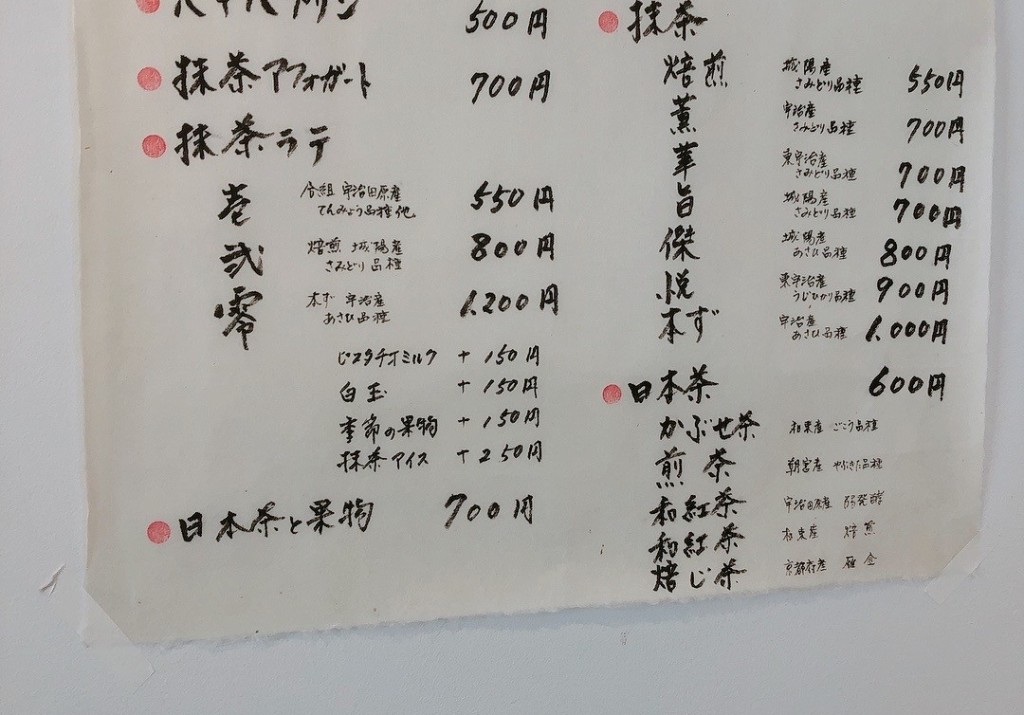 500円
抹茶アフォガート 700円
抹茶ラテ
壱 合組 宇治田原産 てんみょう品種他 550円
弐 焙煎 城陽産 さみどり品種 800円
零 本ず 宇治産 あさひ品種 1,200円
ピスタチオミルク +150円
白玉 +150円
季節の果物 +150円
抹茶アイス +250円
日本茶と果物 700円
抹茶
焙煎 城陽産 さみどり品種 550円
薫 宇治産 さみどり品種 700円
華 東宇治産 さみどり品種 700円
旨 城陽産 さみどり品種 700円
傑 城陽産 あさひ品種 800円
悦 東宇治産 うじひかり品種 900円
本ず 宇治産 あさひ品種 1,000円
日本茶 600円
かぶせ茶 和束産 ごこう品種
煎茶 朝宮産 やぶきた品種
和紅茶 宇治田原産 弱発酵
和紅茶 和束産 焙煎
焙じ茶 京都府産